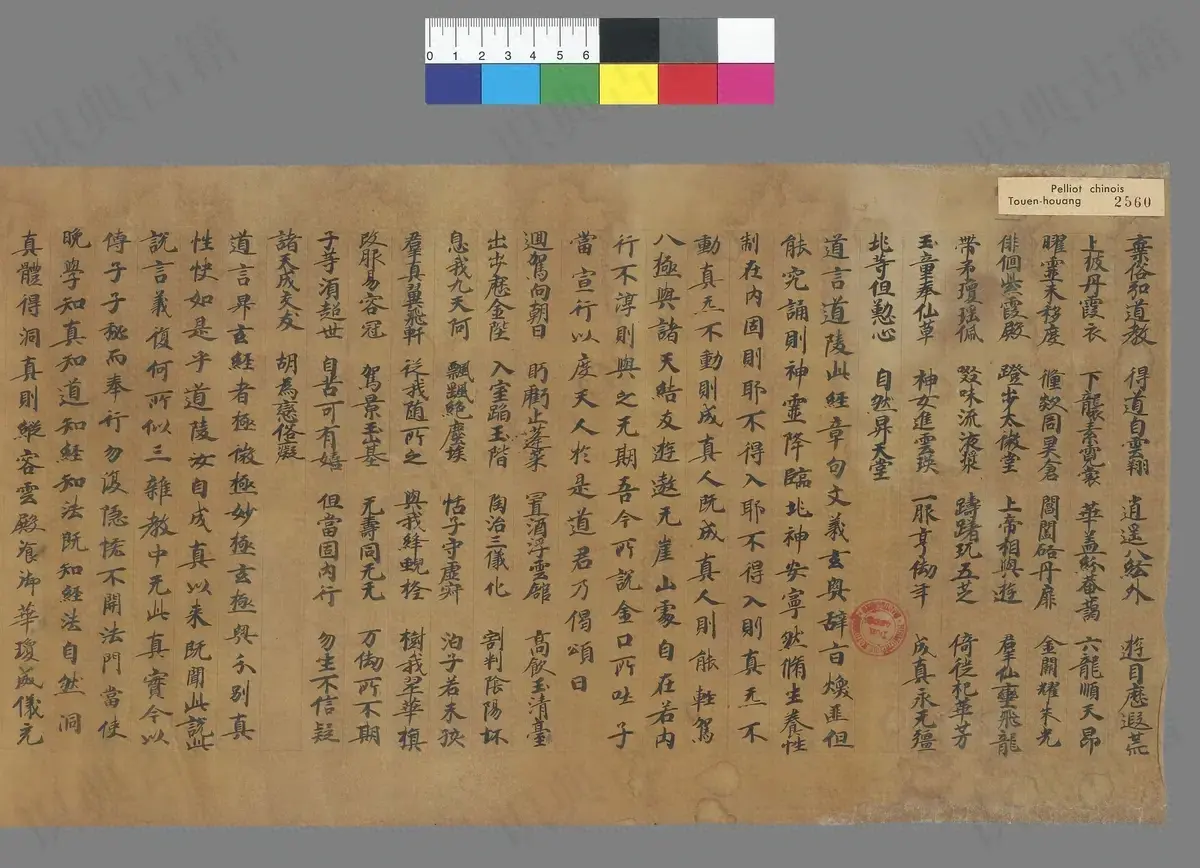 Pelliot chinois
Touen-houang 2560
0 1 2 3 4 5 6
棄俗弘道教 得道自雲翔 逍遥八紘外 遊目歷遐荒
上披丹霞衣 下襲素霓裳 華蓋紛菴藹 六龍順天昂
曜靈未移度 儵欻周昊倉 閶闔啓丹扉 金闕耀朱光
俳佪紫霞殿 蹬步太微堂 上帝相與遊 羣仙塞飛龍
帶弟瓊瑶佩 啜味流液漿 躊躇玩五芝 倚徙杞華芳
玉童奉仙草 神女進雲瑛 一服亨劫年 成真永无疆
此等但懃心 自然昇天堂
道言道陵此經章句文義玄奥辝旨煥韭但
能究誦則神靈降臨此神安寧然脩生養性
制在内固則耶不得入耶不得入則真炁不
動真炁不動則成真人既成真人則能輕駕
八極與諸天結友遊遨无崖山蒙自在若内
行不淳則與之无期吾今所說金口所吐子
當宣行以度天人於是道君乃偈頌曰
迴駕向朝日 眄齭上蓬萊 置酒浮雲舘 高飲玉清臺
出出歷金陛 入室蹈玉階 陶冶三儀化 割判陰陽坏
息我九天河 飄颻絶塵埃 怗子守虛寂 泊子若未孩
羣真翼飛軒 従我隨所之 與我絳蜺栓 樹我翠華旗
改服易客冠 駕景玉基 无壽同无无 万劫所不期
子等湏超世 自苦可有嬉 但當固内行 勿生不信疑
諸天成交友 胡為戀俗癡
道言昇玄經者極微極妙極玄極奥分別真
性快如是乎道陵汝自成真以来既聞此說此
說言義復何所似三雜教中无此真實今以
傳子子秘而奉行勿復隐恡不開法門當使
晚學知真知道知經知法既知經法自然洞
真體得洞真則縱容雲殿飡御華瓊盛儀充